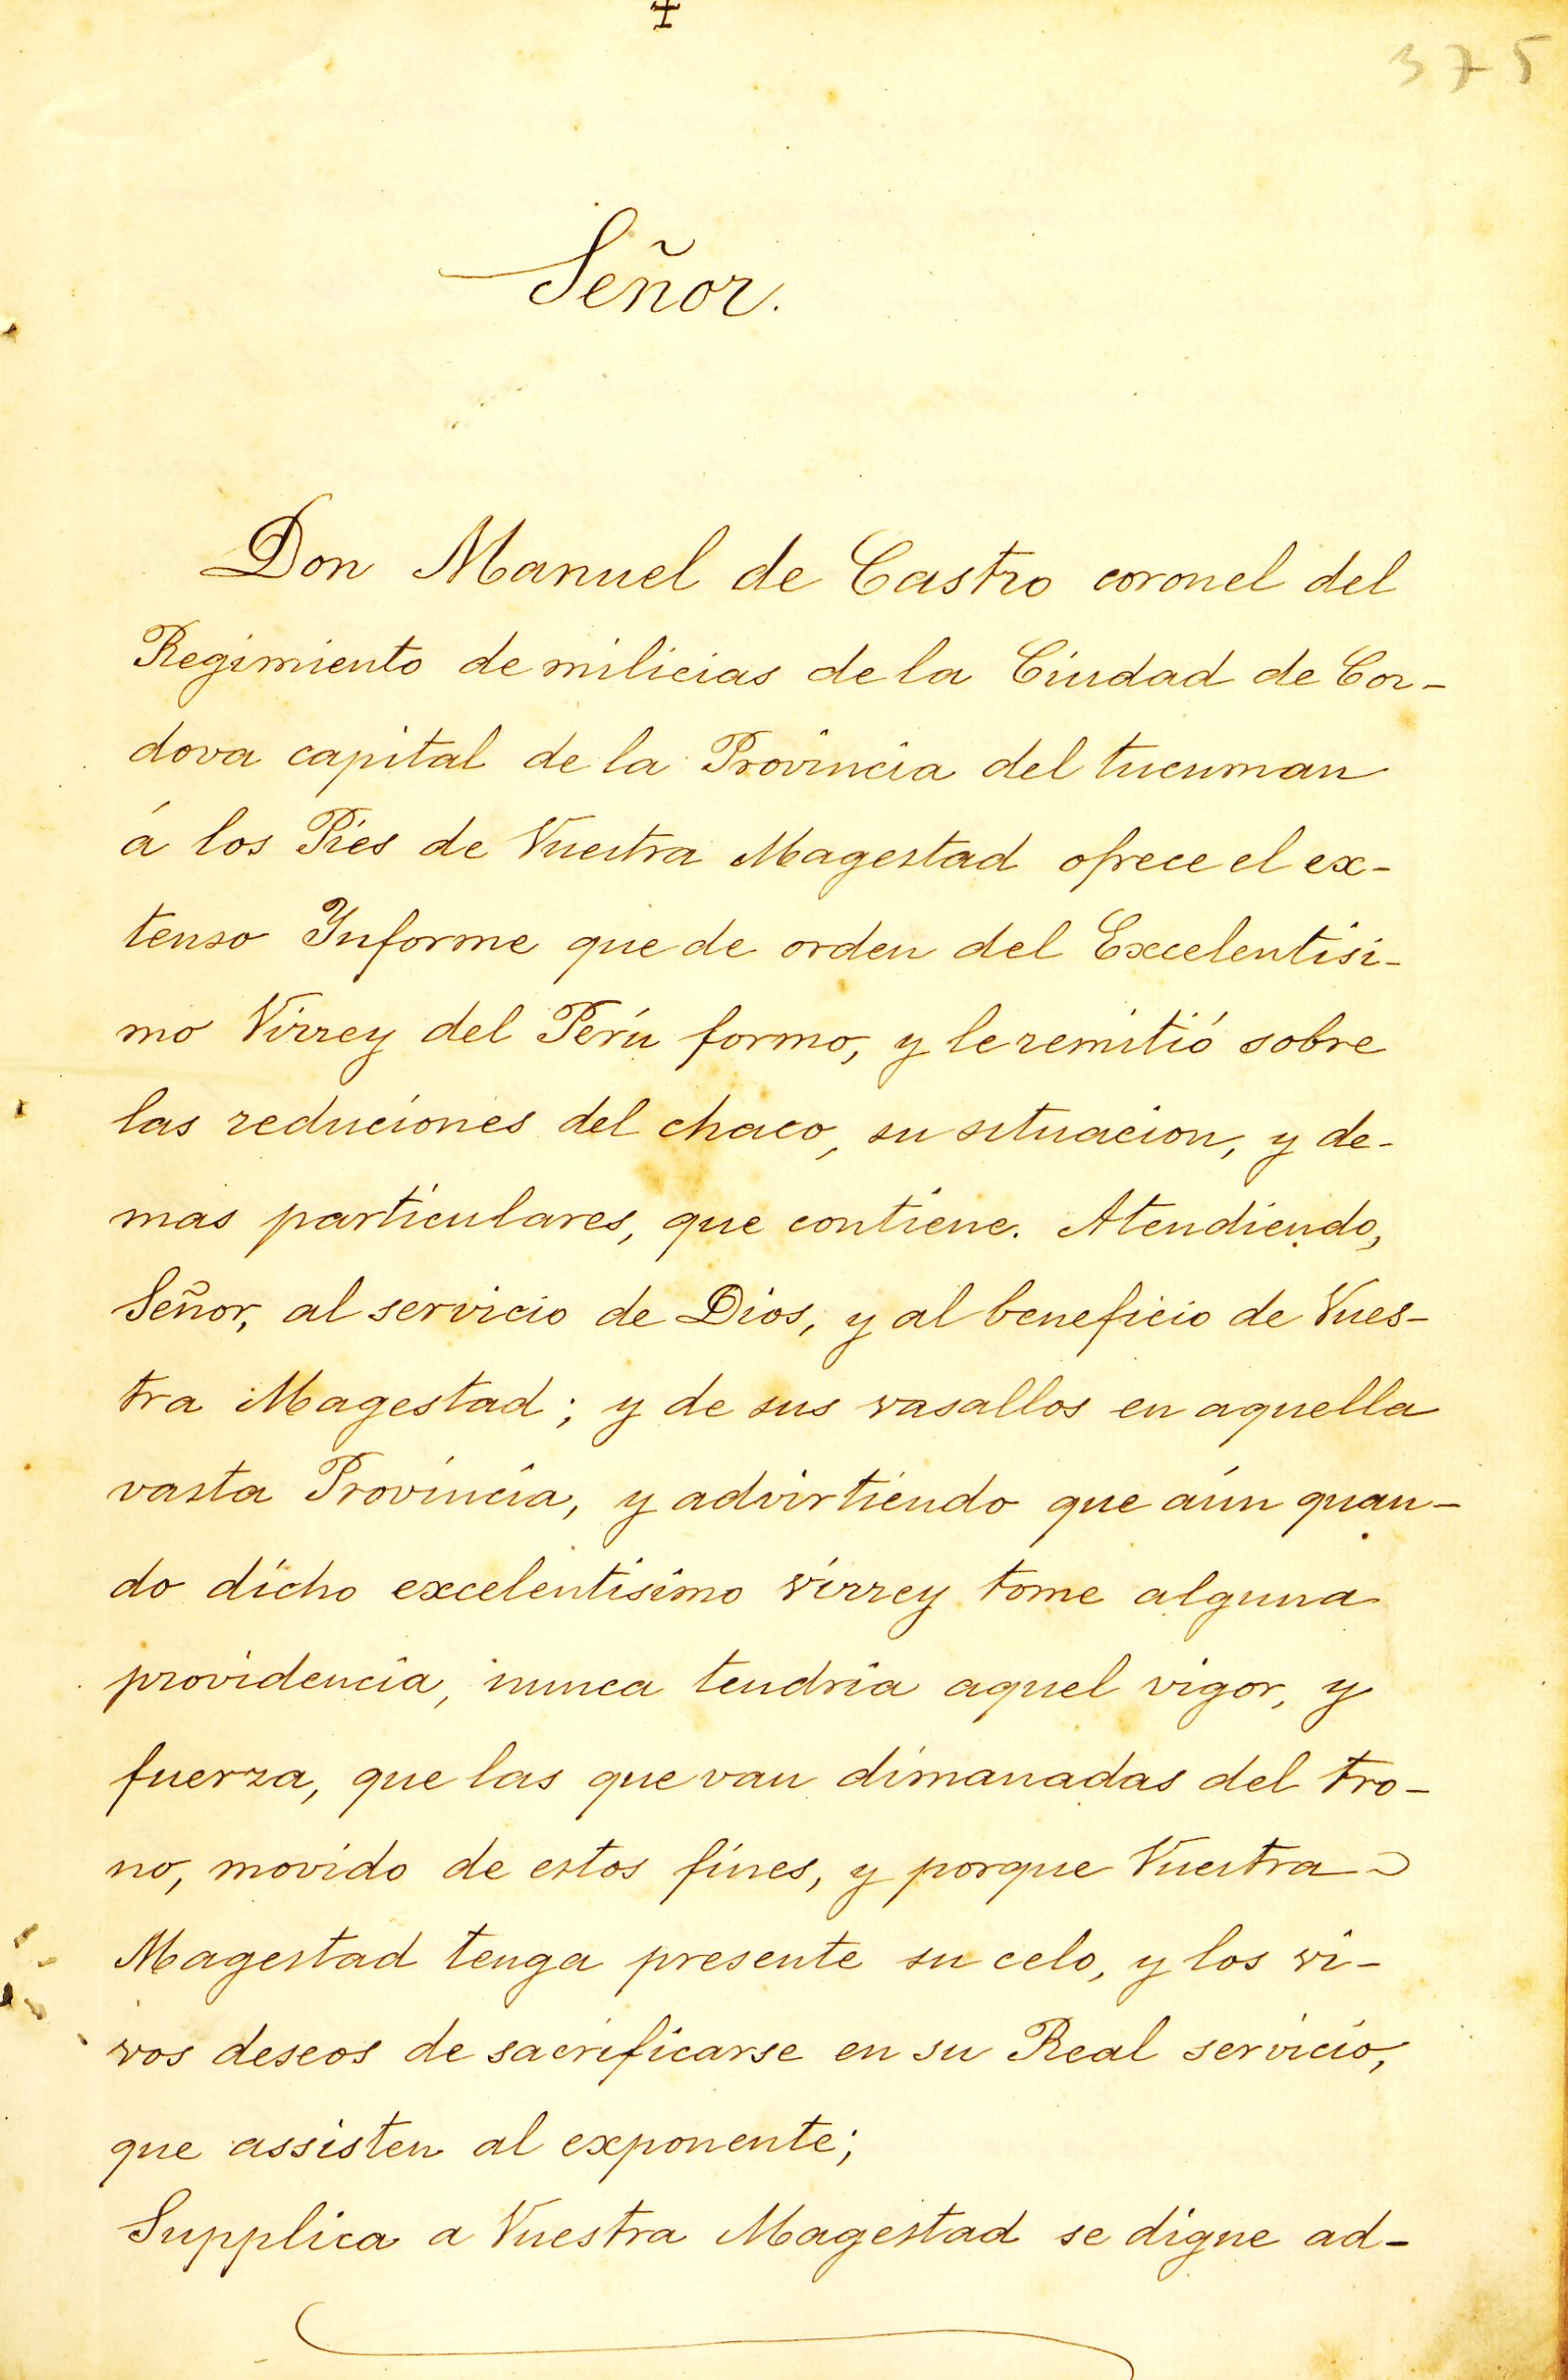 375
Señor.
Don Manuel de Castro coronel del
Regimiento de milicias de la Ciudad de Cor-
dova capital de la Provincia del tucuman
á los Pies de Vuestra Magestad ofrece el ex-
tenso Ynforme que de orden del Excelentisi-
mo Virrey del Perú formo, y le remitió sobre
las reduciones del chaco, su situacion, y de-
mas particulares, que contiene. Atendiendo,
Señor, al servicio de Dios, y al beneficio de Vues-
tra Magestad; y de sus vasallos en aquella
vasta Provincia, y advirtiendo que aún quan-
do dicho excelentisimo virrey tome alguna
providencia, nunca tendria aquel vigor, y
fuerza, que las que van dimanadas del tro-
no, movido de estos fines, y porque Vuestra
Magestad tenga presente su celo, y los vi-
vos deseos de sacrificarse en su Real servicio,
que assisten al exponente;
Supplica a Vuestra Magestad se digne ad-